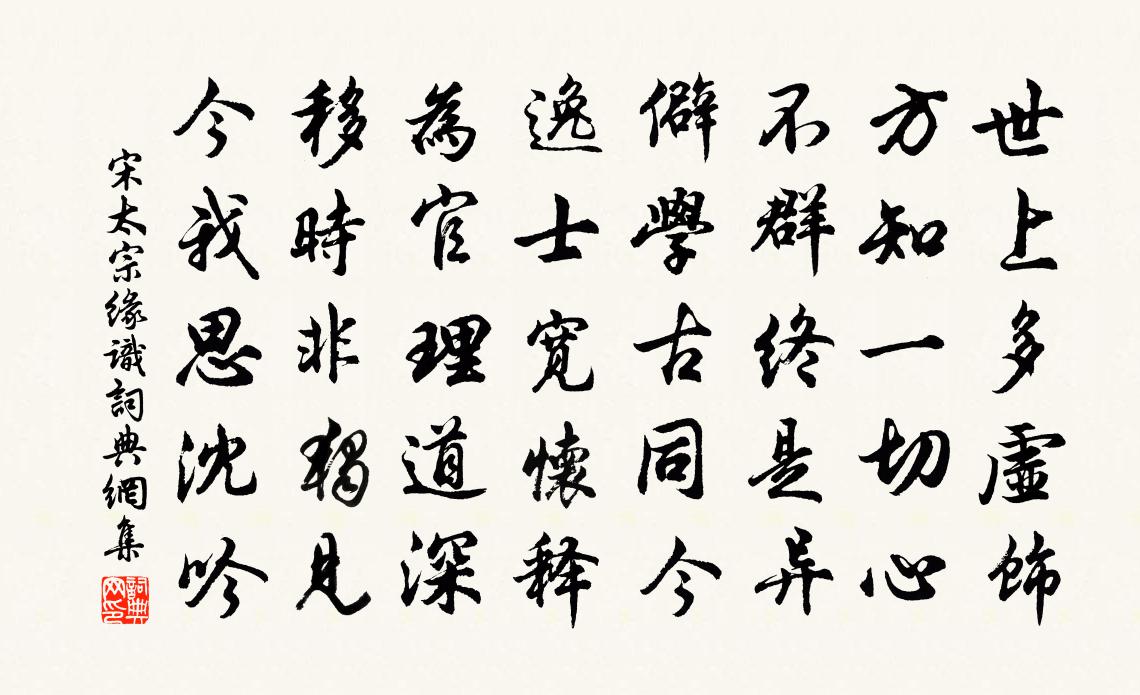 世上多虛飾
方知一切心
不群終是异
僻學古同今
逸士寬懷释
為官理道深
移時非獨見
今我思沈吟
宋太宗緣識詞典網集
詞典網印